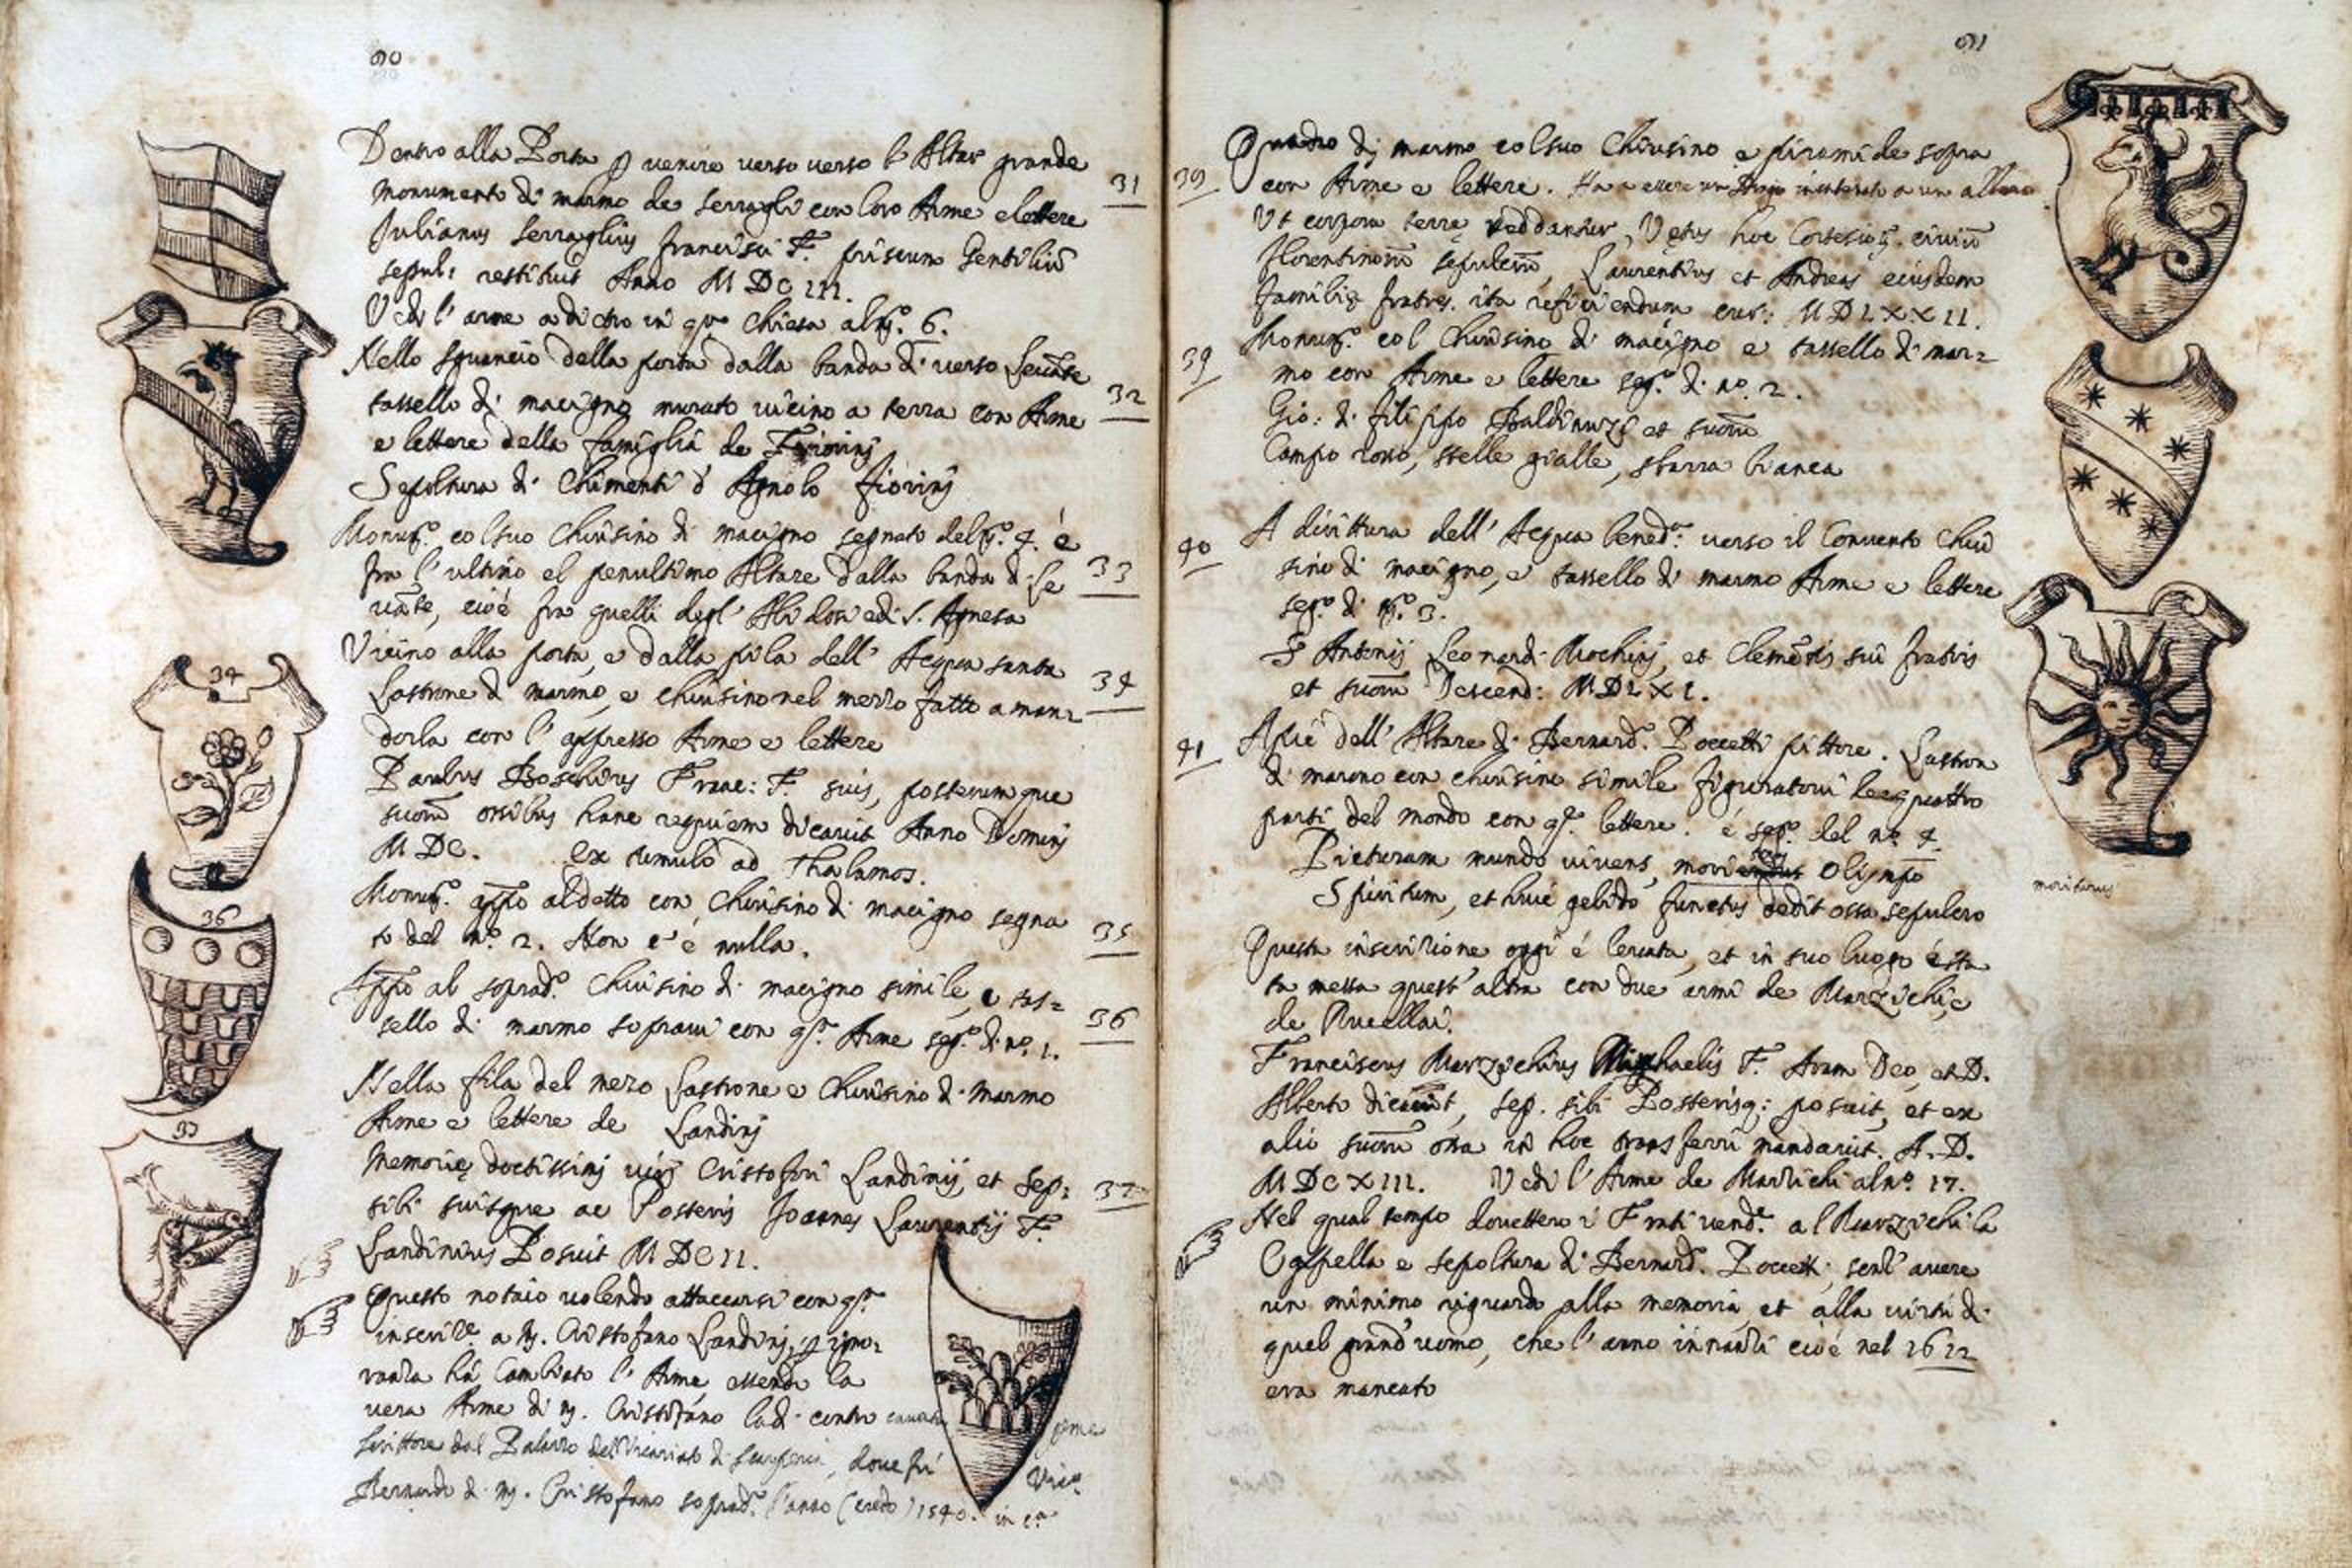 90
Dentro alla Porta p venire verso verso l'Altar grande
monumento di marmo de Serragli con loro Arme e lettere
31
Julianus Serraglius Francisci F. priscum Gentiliū
sepul: restituit Anno MDCIII.
Vedi l'arme adietro in qta Chiesa al no. 6.
Nello sguancio della porta dalla banda di verso Levāte
tassello di macigno murato vicino a terra con Arme
32
e lettere della famiglia de Fiorinj
Sepoltura di Chimenti d'Agnolo fiorinj
Monumto. col suo chiusino di macigno segnato del no. 4. è
fra l'ultimo el penultimo Altare dalla banda di Le
33
vāte, cioè fra quelli degl'Alidosi e di S. Agnesa
Vicino alla porta, e dalla pila dell'Acqua santa
34
Lastrone di marmo, e chiusino nel mezzo fatto a man=
34
dorla con l'appresso Arme e lettere
Paulus Boschius Franc: F. suis, posterumque
suorū ossibus hanc requiem dicavit Anno Dominj
MDC. Ex tumulo ad Thalamos.
Monumto. appo al detto con Chiusino di macigno segna
to del no. 2. Non c'è nulla.
35
36
Appo al soprado. Chiusino di macigno simile, e tas=
sello di marmo sopravi con qta. Arme sego. di no. 1.
36
Nella fila del mezo Lastrone e Chiusino di marmo
Arme e lettere de Landinj
37
Memorię doctissimj virj Cristofori Landinij, et sep:
sibi suisque ac Posteris Joannes Laurentij F.
37
Landinius Posuit MDCII.
Questo notaio volendo attaccarsi con qta.
inscrize. a M. Cristofano Landinj, p igno=
ranza hà Cambiato l'Arme, essendo la
vera Arme di M. Cristofano la di contro cavata
Scrittore dal Palazzo del Vicariato di Scarperia, dove fù Vico.
Bernardo di M. Cristofano soprado. l'anno (credo) 1540. in ca.
91
Quadro di marmo col suo Chiusino e piramide sopra
con Arme e lettere. Ha a essere un Drago incatenato a un albero
Ut corpora terrę reddantur, Vetus hoc Cortesioq. civiū
florentinorū sepulcrū, Laurentius et Andreas eiusdem
familię fratres. ita reficiendum cur: MDLXXII.
39
Monumto. col Chiusino di macigno e tassello di mar=
mo con Arme e lettere sego. di no. 2.
Gio: di filippo Baldinuzi et suorū
Campo rosso, stelle gialle, sbarra bianca
40
A dirittura dell'Acqua beneda. verso il Convento Chiu
sino di macigno, e tassello di marmo Arme e lettere
sego. di no. 3.
S Antonij Leonardi Mochinj, et Clemētis sui fratris
et suorū Descend: MDLXI.
41
A piè dell'Altare di Bernardo. Poccetti pittore. Lastron
di marmo con chiusino simile figuratovi le quattro
parti del mondo con qte. lettere. è sego. del no. 4.
Picturam mundo vivens, Olimpo
moriturus
Spiritum, et huic gelido functus dedit ossa sepulcro
Questa inscrizione oggi è levata, et in suo luogo è sta
ta messa quest'altra con due armi de Marzichi, e
de Rucellai.
Franciscus Marzichius Michaelis F. Aram Deo, et D.
Alberto dicavit, sep. sibi Posterisq: posuit, et ex
alio suorū ossa in hoc transferri mandavit. A.D.
MDCXIII. Vedi l'Arme de Marzichi al no. 17.
Nel qual tempo dovettero i Frati vendre. al Marzichi la
Cappella e sepoltura di Bernardo. Poccetti, senz'avere
un minimo riguardo alla memoria, et alla virtù di
quel grand'uomo, che l'anno innanzi cioè nel 1612
era mancato